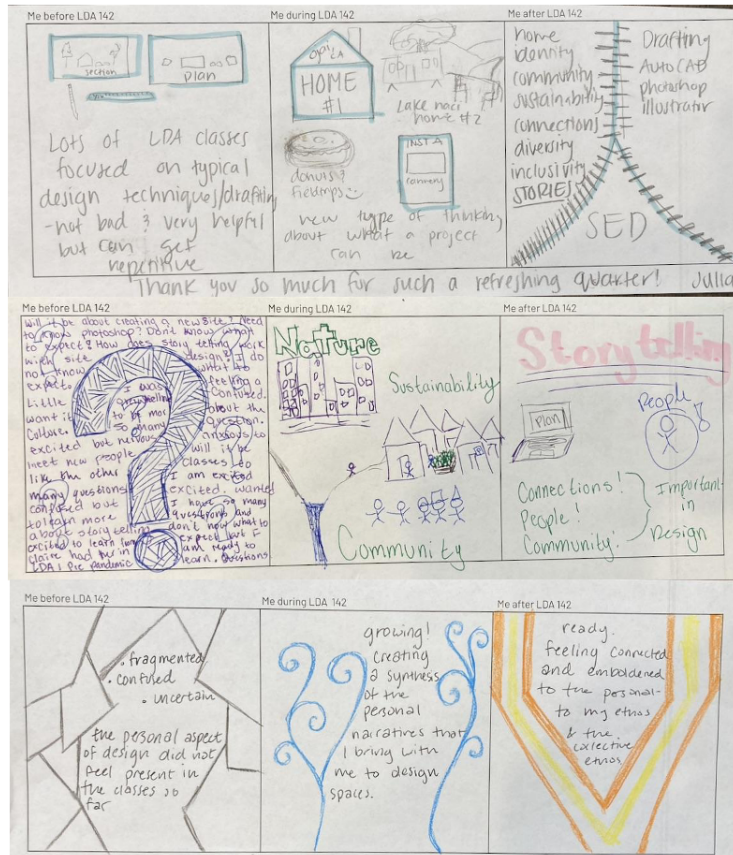 Me before LDA 142
section
plan
Lots of LDA classes
focused on typical
design techniques/drafting
-not bad & very helpful
but can get
repetitive
Me during LDA 142
HOME
#1
home #2
donuts &
fieldtrips
INSTA
new type of thinking
about what a project
can be
Me after LDA 142
home
identity
community
sustainability
connections
diversity
inclusivity
STORIES
Drafting
AUTOCAD
photoshop
illustrator
SED
Thank you so much for such a refreshing quarter! Julia
Me before LDA 142
Will it be about creating a new site? Need
to know photoshop? Don't know what
to expect? How does story telling work
with site design? I do
not know what to
expect. feeling a
Little confused.
want it about the
Culture. question.
excited but nervous anxious to
meet new people will it be
like the other classes
many questions I am excited
confused but excited. wanted
to learn more I have so many
about story telling questions and
excited to learn don't now what to
claire had put in expect but I
LDA 1 Pre pandemic am ready to
learn. Questions
I was
to be more
so many
Me during LDA 142
Nature
Sustainability
Community
Me after LDA 142
Storytelling
Plan
People
Connections!
People!
Community.
Important
in
Design
Me before LDA 142
• fragmented
• confused
• uncertain
the personal aspect
of design did not
feel present in
the classes so
far
Me during LDA 142
growing!
creating
a synthesis
of the
personal
narratives that
I bring with
me to design
spaces.
Me after LDA 142
ready.
feeling connected
and emboldened
to the personal-
to my ethos
& the
collective
ethos